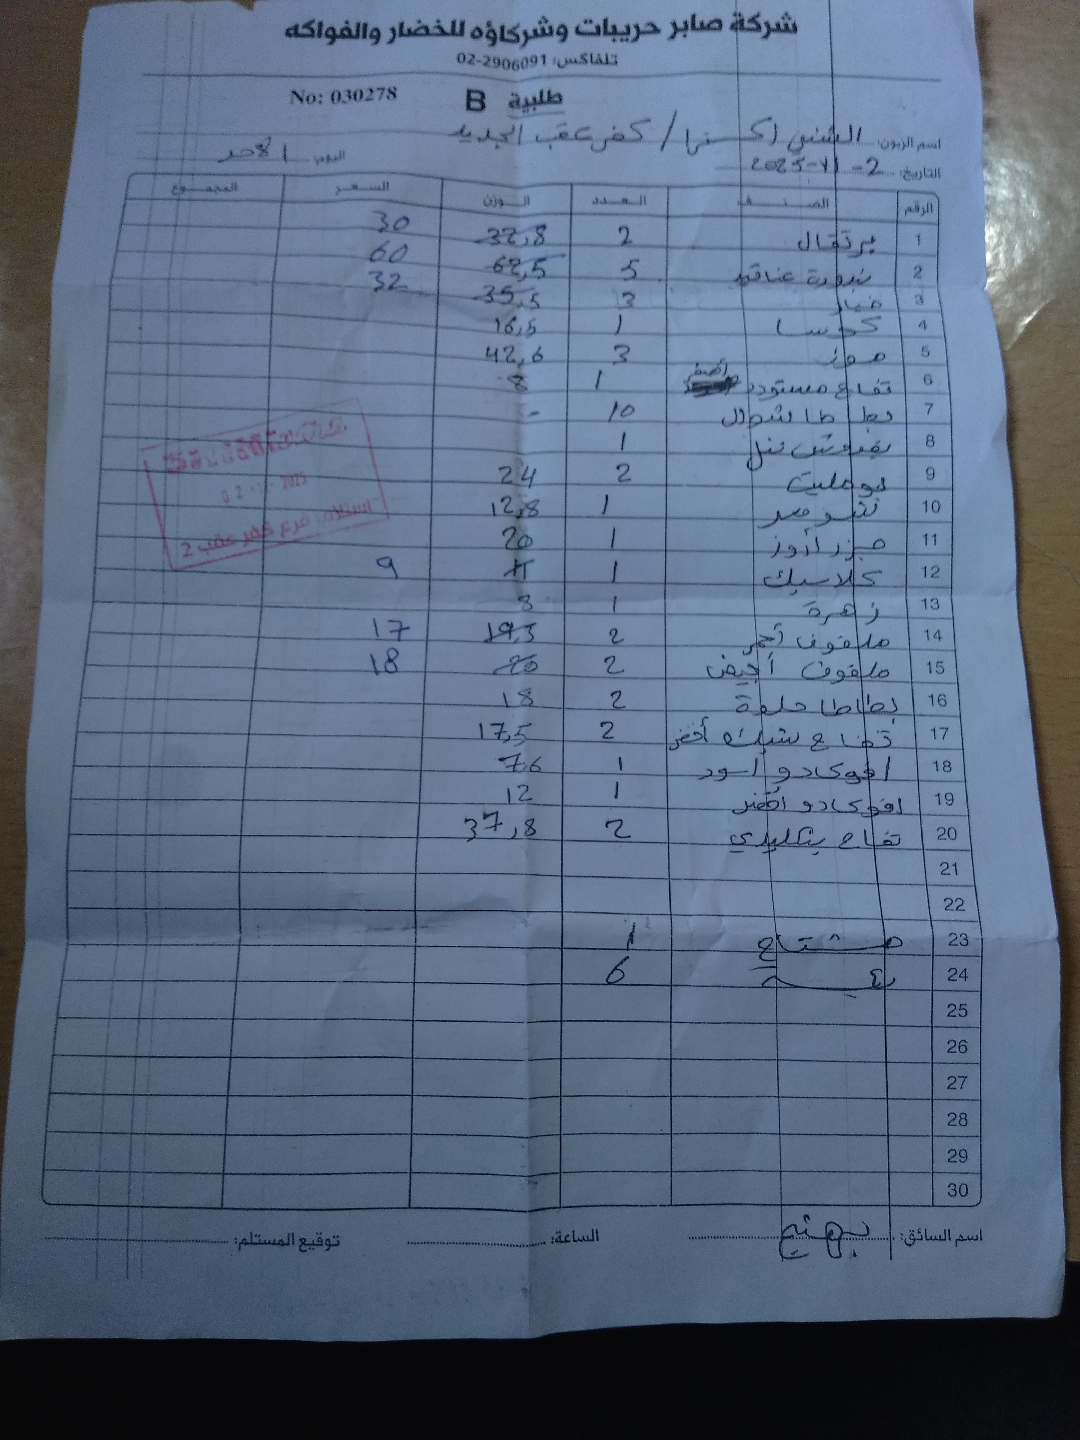 شركة صابر حريبات وشركاؤه للخضار والفواكه
تلفاكس: 02-2906091
طلبية B No: 030278
اسم الزبون: الشني اكسترا / كفر عقب الجديد
التاريخ: 2-11-2025 اليوم: الأحد
الرقم الصنف العدد الوزن السعر المجموع
1 برتقال 2 32,8 30
2 بندورة عناقيد 5 62,5 60
3 خيار 3 35,5 32
4 كوسا 1 16,5
5 موز 3 42,6
6 تفاح مستورد أصفر 1 8
7 بطاطا شوال 10 -
8 1
9 بومليت 2 24
10 1 12,8
11 جزر أنوز 1 20
12 كلاسيك 1 11 9
13 زهرة 1 8
14 ملفوف أحمر 2 19,5 17
15 ملفوف أبيض 2 20 18
16 بطاطا حلوة 2 18
17 تفاح سبيك أخضر 2 17,5
18 افوكادو اسود 1 7,6
19 افوكادو أخضر 1 12
20 تفاح بنكليدي 2 37,8
21
22
23 مشتاح 1
24 6
25
26
27
28
29
30
استلام: فرع كفر عقب 2
اسم السائق: الساعة: توقيع المستلم: